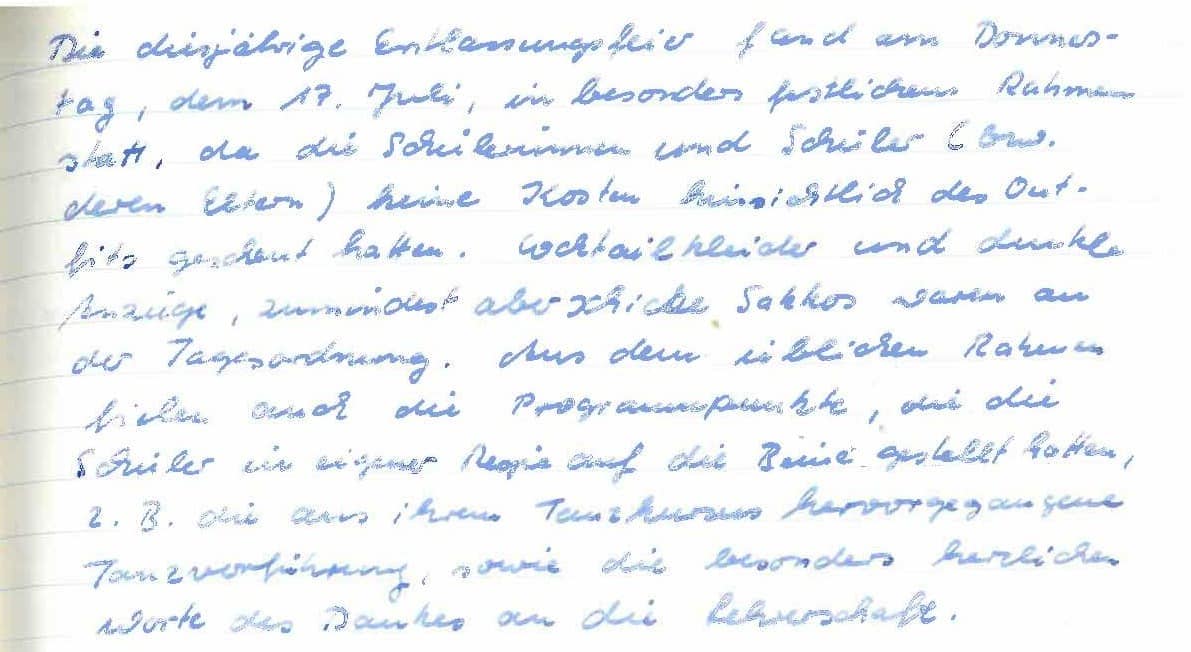 Die diesjährige Entlassungsfeier fand am Donners-
tag, dem 17. Juli, in besonders festlichem Rahmen
statt, da die Schülerinnen und Schüler (bzw.
deren Eltern) keine Kosten hinsichtlich des Out-
fits gescheut hatten. Cocktailkleider und dunkle
Anzüge, zumindest aber schicke Sakkos waren an
der Tagesordnung. Aus dem üblichen Rahmen
fielen auch die Programmpunkte, die die
Schüler in eigener Regie auf die Beine gestellt hatten,
z. B. die aus ihrem Tanzkursus hervorgegangene
Tanzvorführung, sowie die besonders herzlichen
Worte des Dankes an die Lehrerschaft.